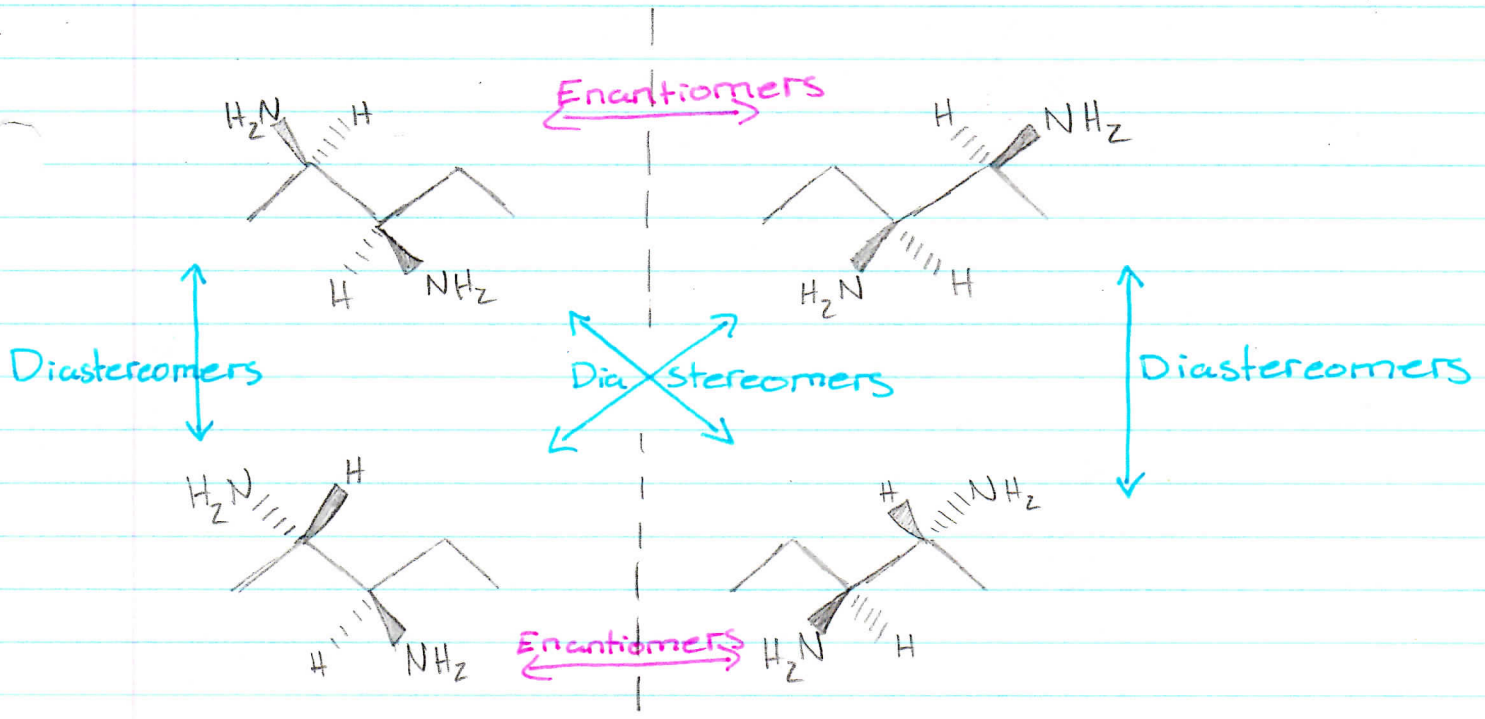 Enantiomers
H₂N H
H NH₂
H NH₂
H₂N H
Diastereomers
Diastereomers
Diastereomers
H₂N H
H NH₂
H NH₂
H₂N H
Enantiomers